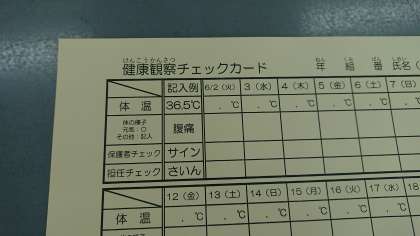 けんこうかんさつ ねん くみ ばん しめい
健康観察チェックカード 年 組 番 氏名(
記入例 6/2(火) 3(水) 4(木) 5(金) 6(土) 7(日)
体 温 36.5℃ . ℃ . ℃ . ℃ . ℃ . ℃
体の様子
元気:○
その他:記入
腹痛
保護者チェック サイン
担任チェック さいん
12(金) 13(土) 14(日) 15(月) 16(火) 17(水) 18
体 温 . ℃ . ℃ . ℃ . ℃ . ℃ . ℃